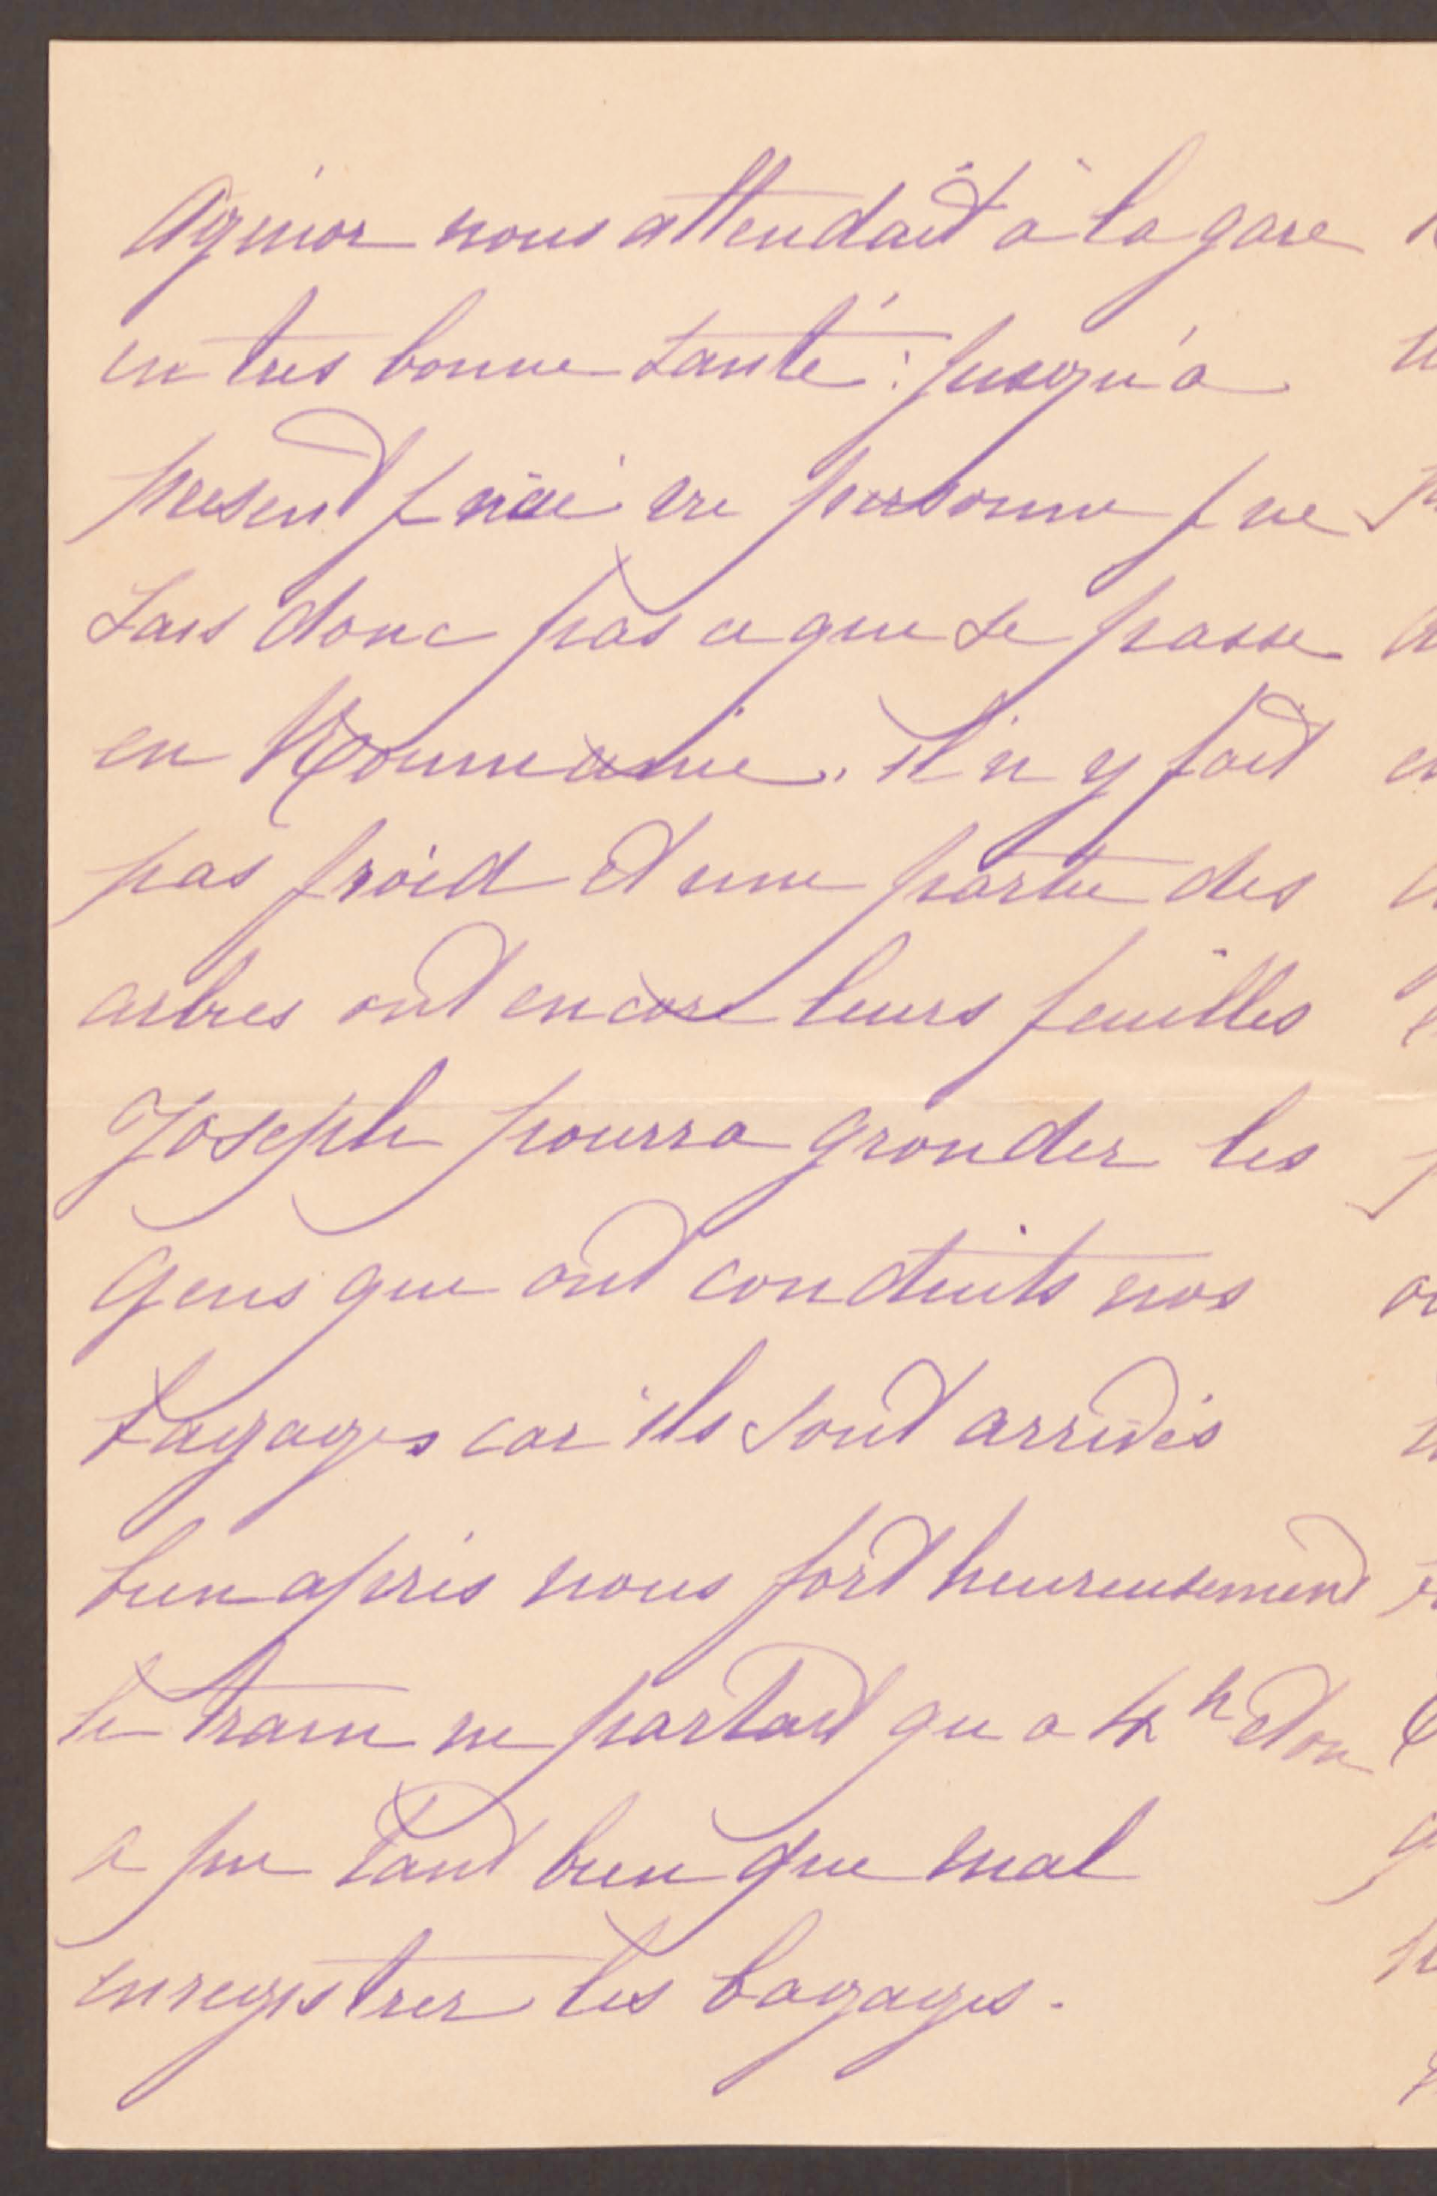 nous attendait à la gare
en tres bonne santé : jusqu'a
present j n'ai vu personne j ne
sais donc pas ce que se passe
en Roumanie. il n y fait
pas froid et une partie des
arbres ont encore leurs feuilles
Joseph pourra gronder les
Gens que ont conduits nos
bagages car ils sont arrivés
bien après nous fort heureusement
le train ne partait qu a 4h et on
a pu tant bien que mal
enregistrer les bagages.